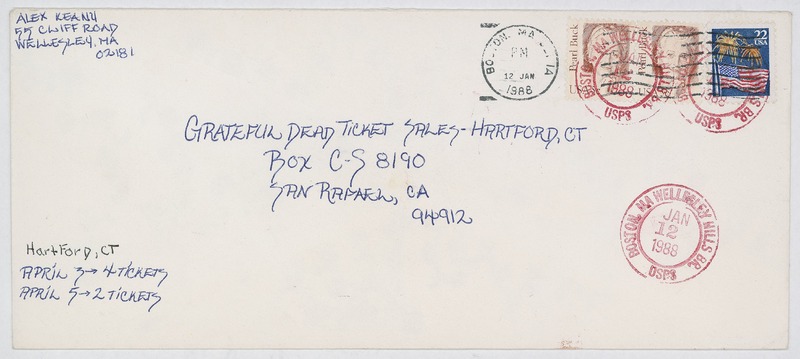 ALEX KEANY
55 CLIFF ROAD
WELLESLEY, MA
02181
BOSTON, MA
PM
12 JAN
1988
Pearl Buck
USA
22
USA
BOSTON, MA WELLESLEY HILLS BR.
1988
USPS
1988
USPS
GRATEFUL DEAD TICKET SALES-HARTFORD, CT
BOX C-S 8190
SAN RAFAEL, CA
94912
BOSTON, MA WELLESLEY HILLS BR.
JAN
12
1988
USPS
Hartford, CT
APRIL 3→4 TICKETS
APRIL 5→2 TICKETS